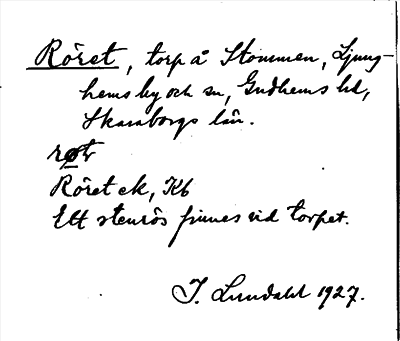 Röret, torp å Stommen, Ljung-
hems by och sn, Gudhems hd,
Skaraborgs län.
røt
Röret ek, Kb
Ett stenrös finnes vid torpet.
J. Lundahl 1927.